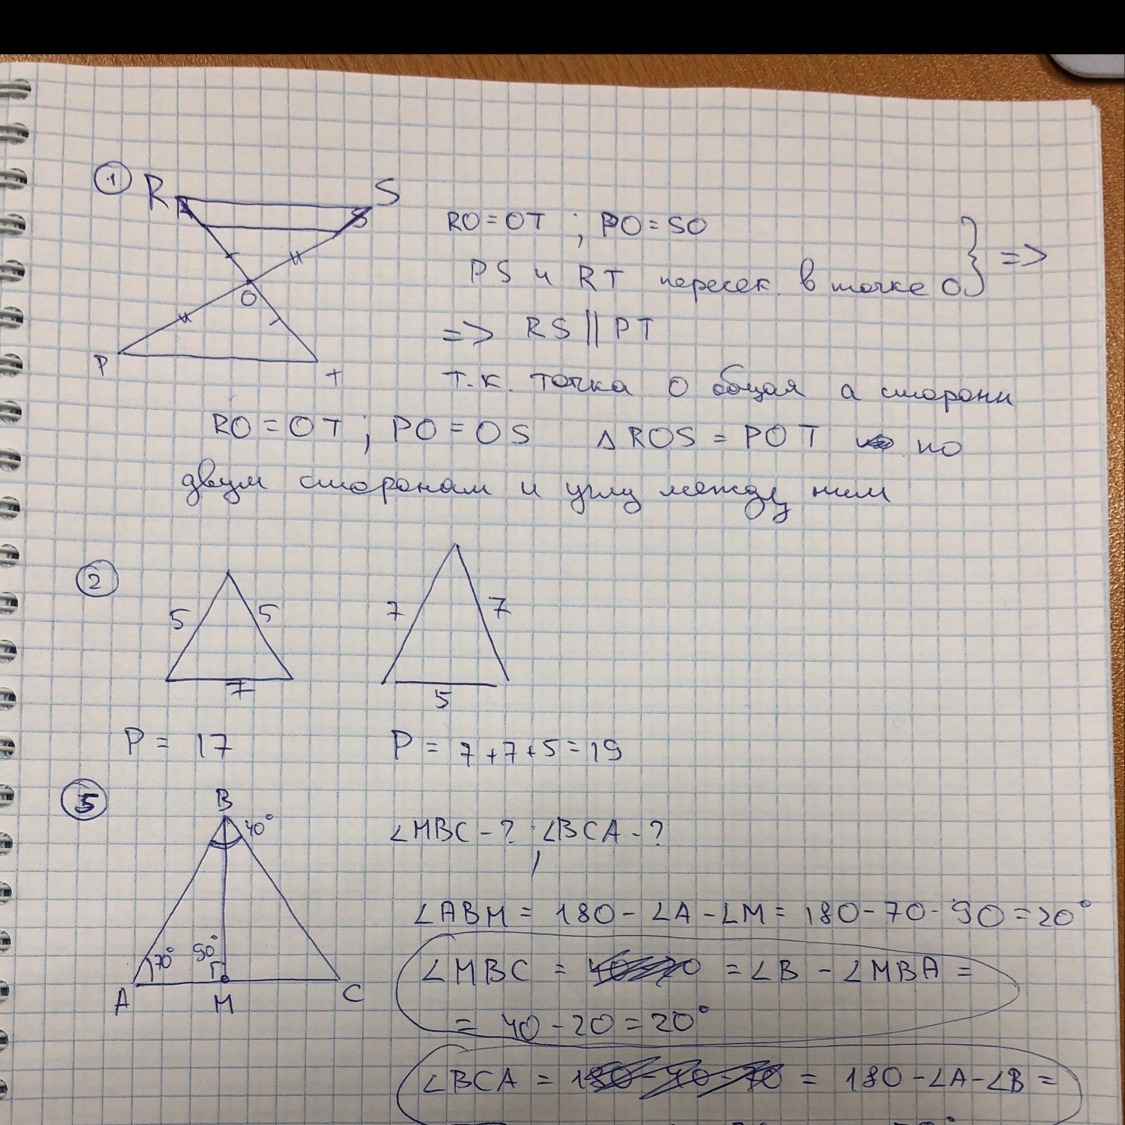 1
R S
RO=OT ; PO=SO
PS и RT пересек. в точке O } =>
O
=> RS || PT
P T
т.к. точка O общая а стороны
RO=OT ; PO=OS △ROS = POT по
двум сторонам и углу между ним
2
5 5 7 7
7 5
P = 17 P = 7+7+5=19
3
B
40°
∠MBC - ? ; ∠BCA - ?
∠ABM = 180-∠A-∠M = 180-70-90=20°
70° 90°
∠MBC = = ∠B - ∠MBA =
A M C
= 40-20=20°
∠BCA = = 180-∠A-∠B =